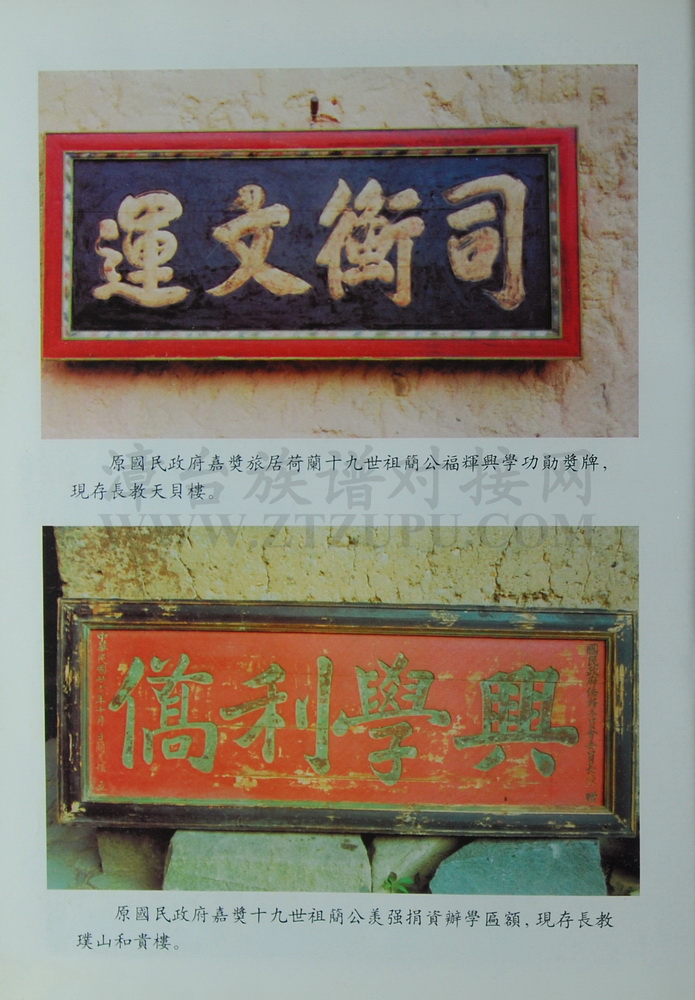 司衡文運
原國民政府嘉獎旅居荷蘭十九世祖簡公福輝興學功勛獎牌，
現存長教天貝樓。
漳台族谱对接网
WWW.ZTZUPU.COM
興學利僑
原國民政府嘉獎十九世祖簡公美强捐資辦學區額，現存長教
璞山和貴樓。